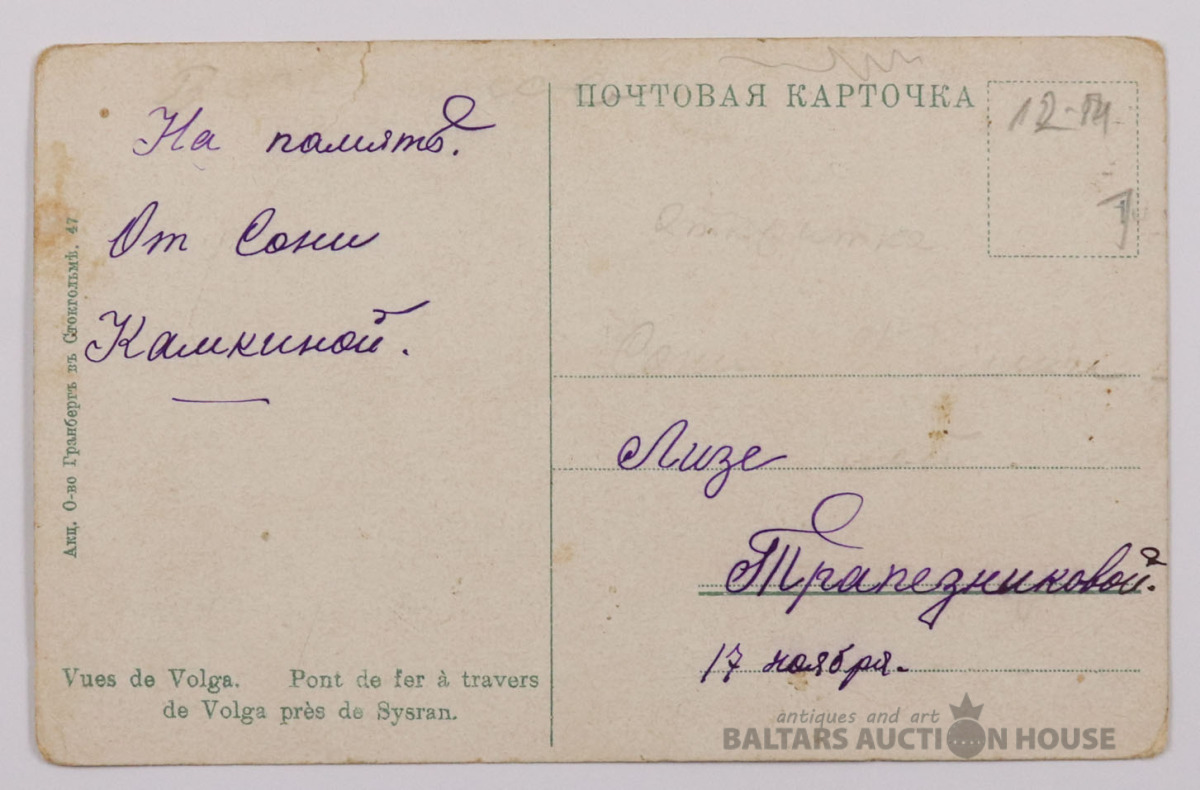 На память.
От Сони
Камкиной.
Акц. О-во Гранбергъ въ Стокгольмѣ. 47
Vues de Volga. Pont de fer à travers
de Volga près de Sysran.
ПОЧТОВАЯ КАРТОЧКА
Лизе
Трапезниковой.
17 ноября.
antiques and art
BALTARS AUCTION HOUSE